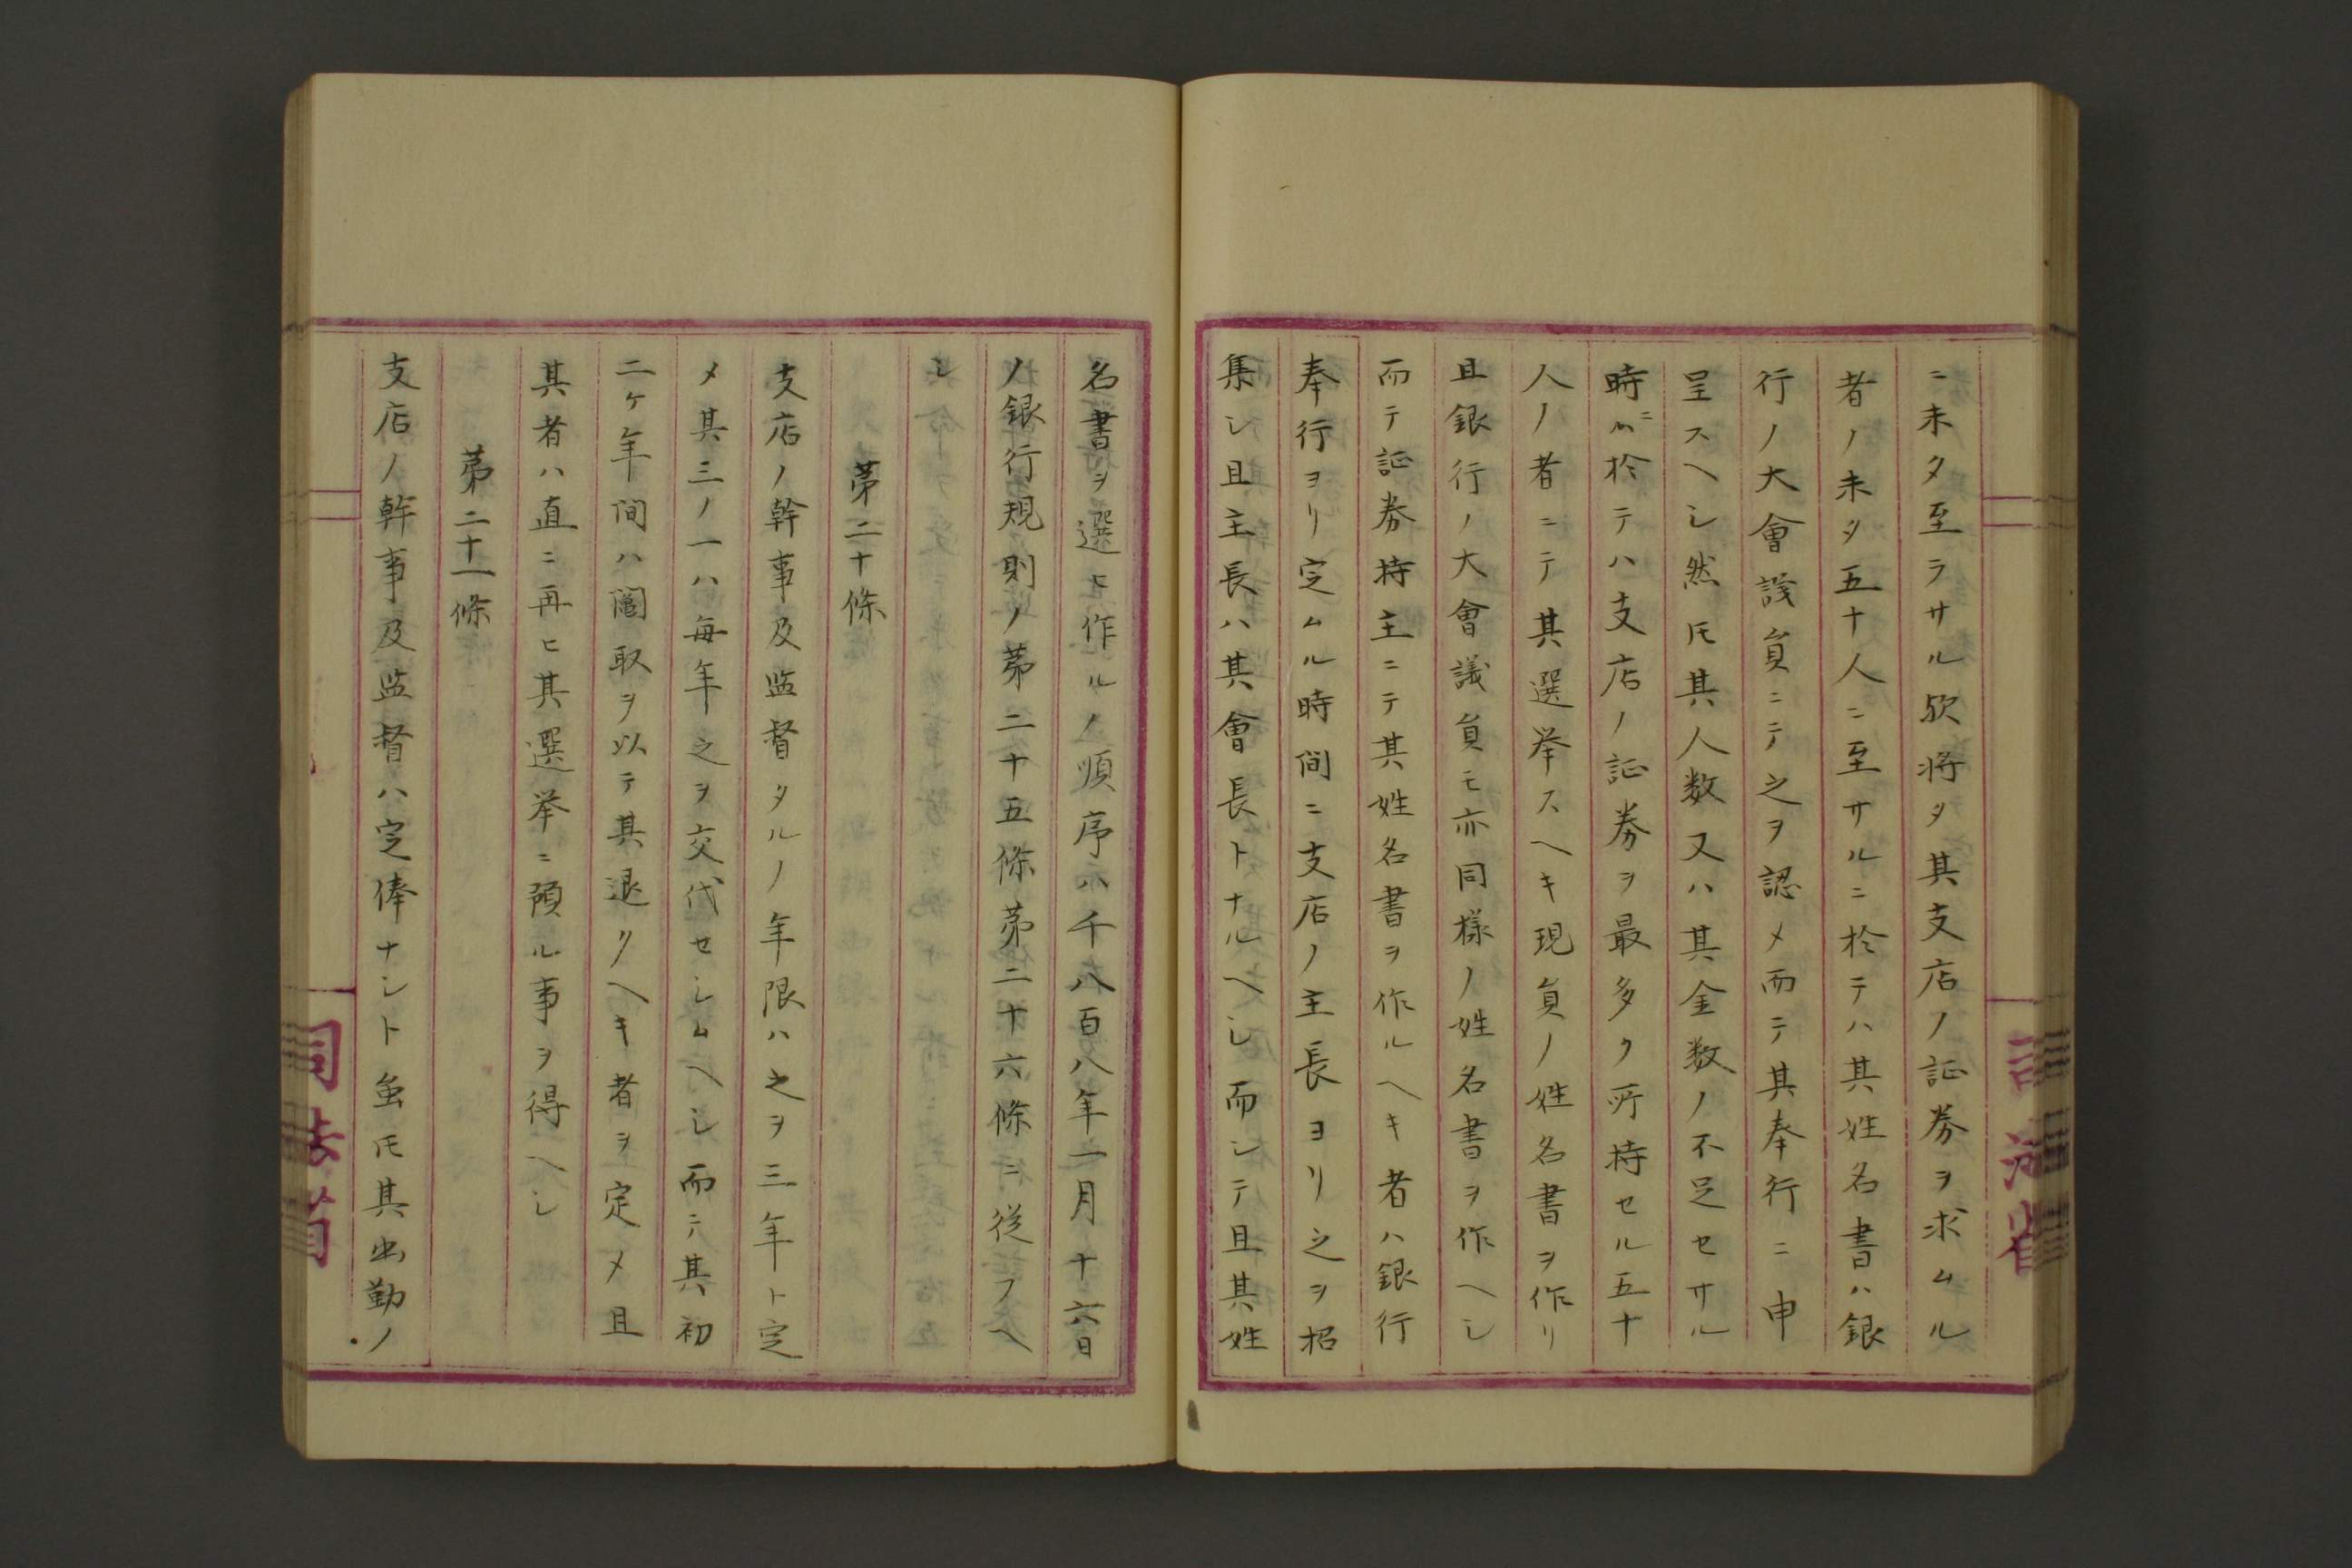 ニ未タ至ラサル欤将タ其支店ノ証券ヲ求ムル
者ノ未タ五十人ニ至サルニ於テハ其姓名書ハ銀
行ノ大會議員ニテ之ヲ認メ而テ其奉行ニ申
呈スヘシ然𪜈其人数又ハ其金数ノ不足セサル
時ニ於テハ支店ノ証券ヲ最多ク所持セル五十
人ノ者ニテ其選挙スヘキ現員ノ姓名書ヲ作リ
且銀行ノ大會議員モ亦同様ノ姓名書ヲ作ヘシ
而テ証券持主ニテ其姓名書ヲ作ルヘキ者ハ銀行
奉行ヨリ定ムル時間ニ支店ノ主長ヨリ之ヲ招
集シ且主長ハ其會長トナルヘシ而シテ且其姓
名書ヲ選ヒ作ルノ順序ハ千八百八年一月十六日
ノ銀行規則ノ第二十五條第二十六條ニ従フヘ
シ
第二十條
支店ノ幹事及监督タルノ年限ハ之ヲ三年ト定
メ其三ノ一ハ毎年之ヲ交代セシムヘシ而テ其初
二ヶ年間ハ鬮取ヲ以テ其退クヘキ者ヲ定メ且
其者ハ直ニ再ヒ其選挙ニ預ル事ヲ得ヘシ
第二十一條
支店ノ幹事及监督ハ定俸ナシト虽𪜈其出勤ノ
司法省